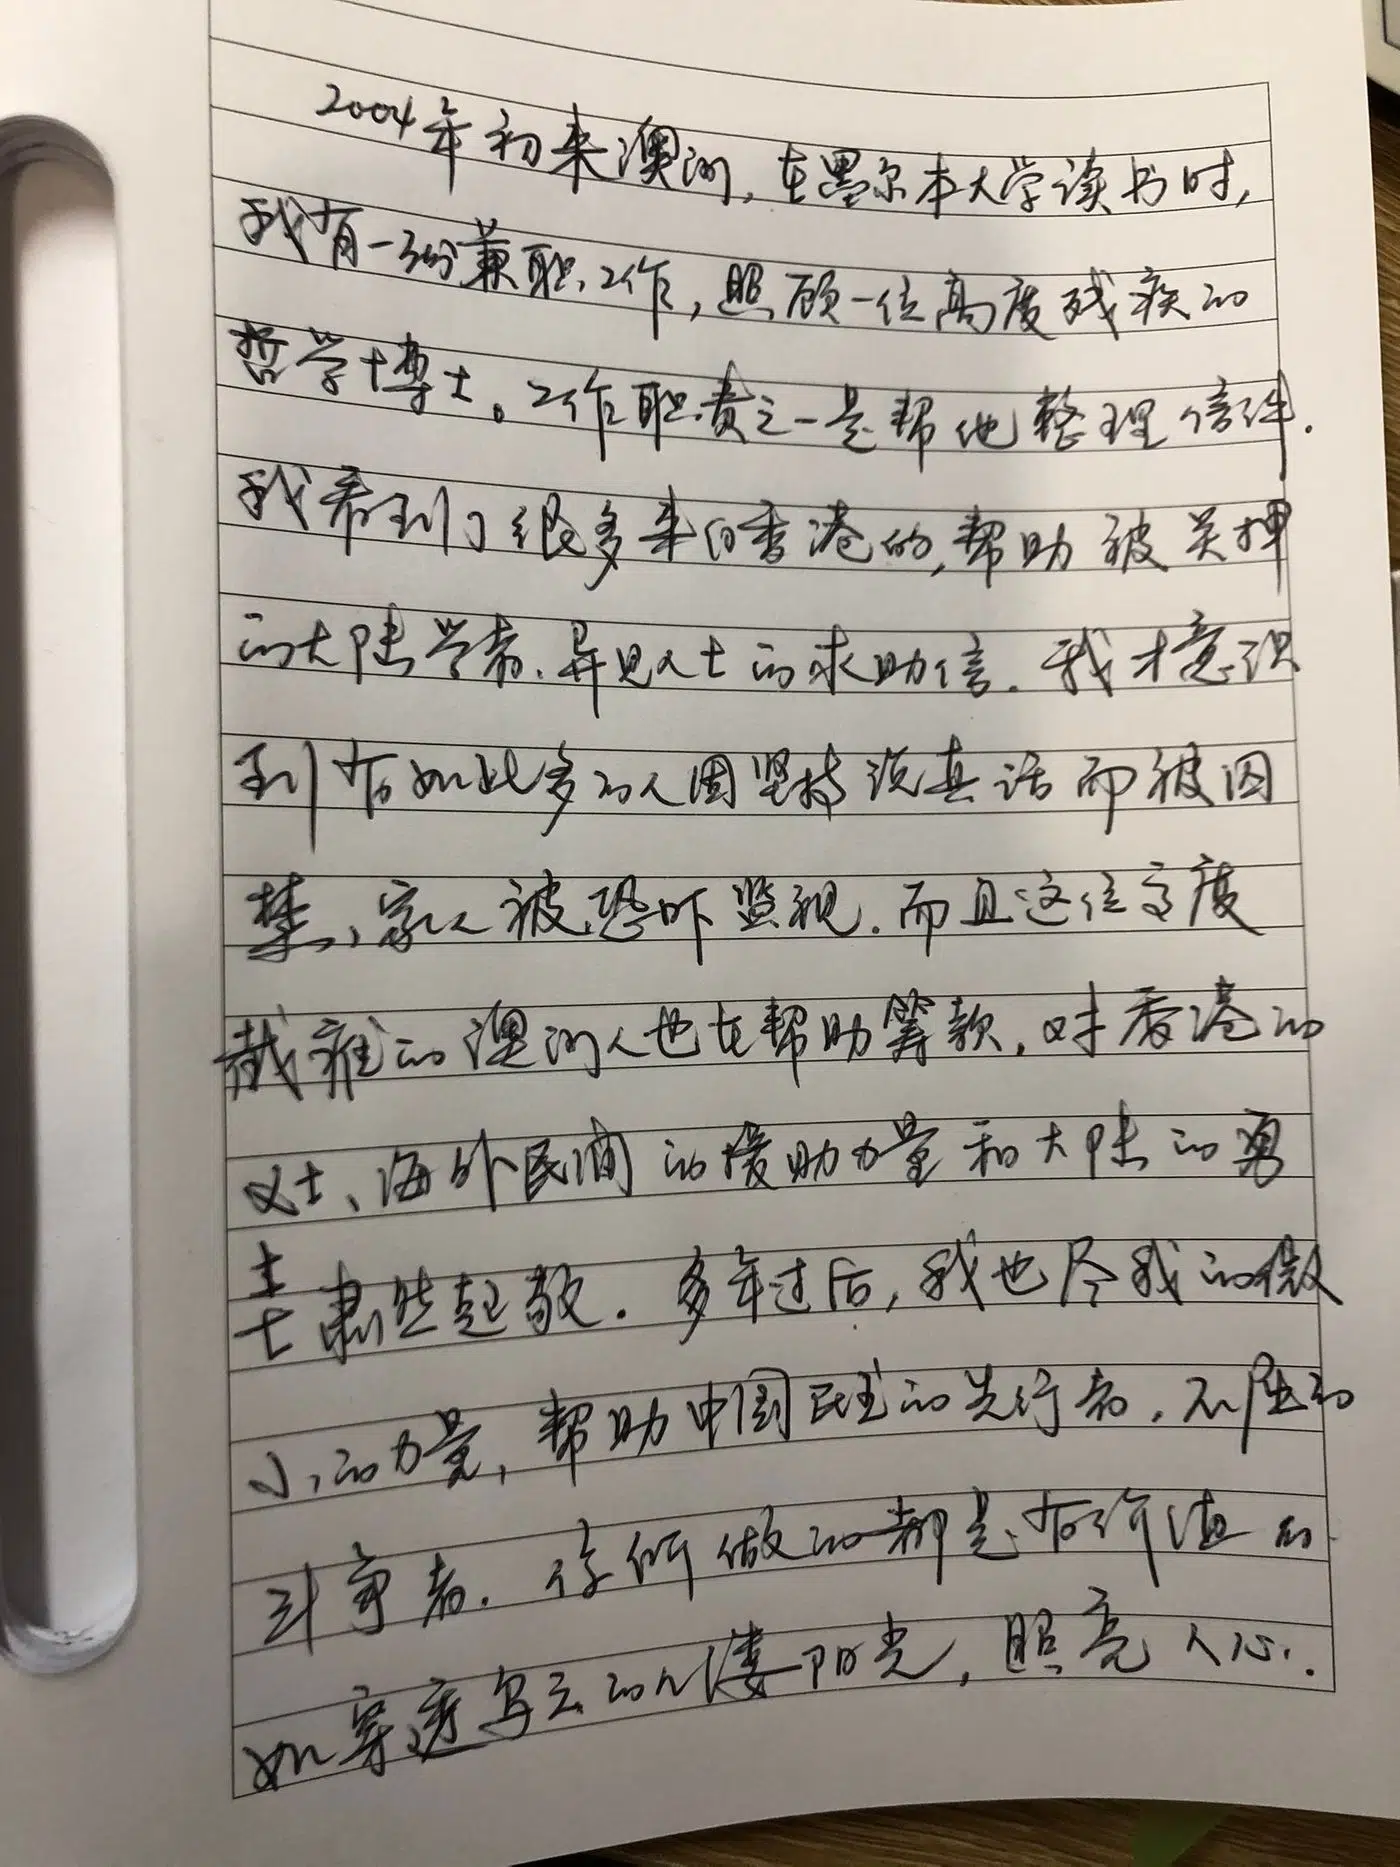 2004年初来澳洲,在墨尔本大学读书时,
我有一份兼职工作,照顾一位高度残疾的
哲学博士。工作职责之一是帮他整理信件.
我看到了很多来自香港的,帮助被关押
的大陆学者、异见人士的求助信.我才意识
到有如此多的人因坚持说真话而被囚
禁、家人被恐吓监视.而且这位高度
残疾的澳洲人也在帮助筹款,对香港的
义士、海外民间的援助力量和大陆的勇
士肃然起敬.多年过后,我也尽我的微
小的力量,帮助中国民主的先行者,不屈的
斗争者.你所做的都是有价值的
如穿透乌云的缕阳光,照亮人心.